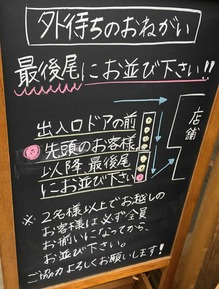 外待ちのおねがい
最後尾にお並び下さい!!
出入口ドアの前
先頭のお客様
以降最後尾
にお並び下さい
店舗
※2名様以上でお越しの
お客様は必ず全員
お揃いになってから、
お並び下さい。
ご協力よろしくお願いします!